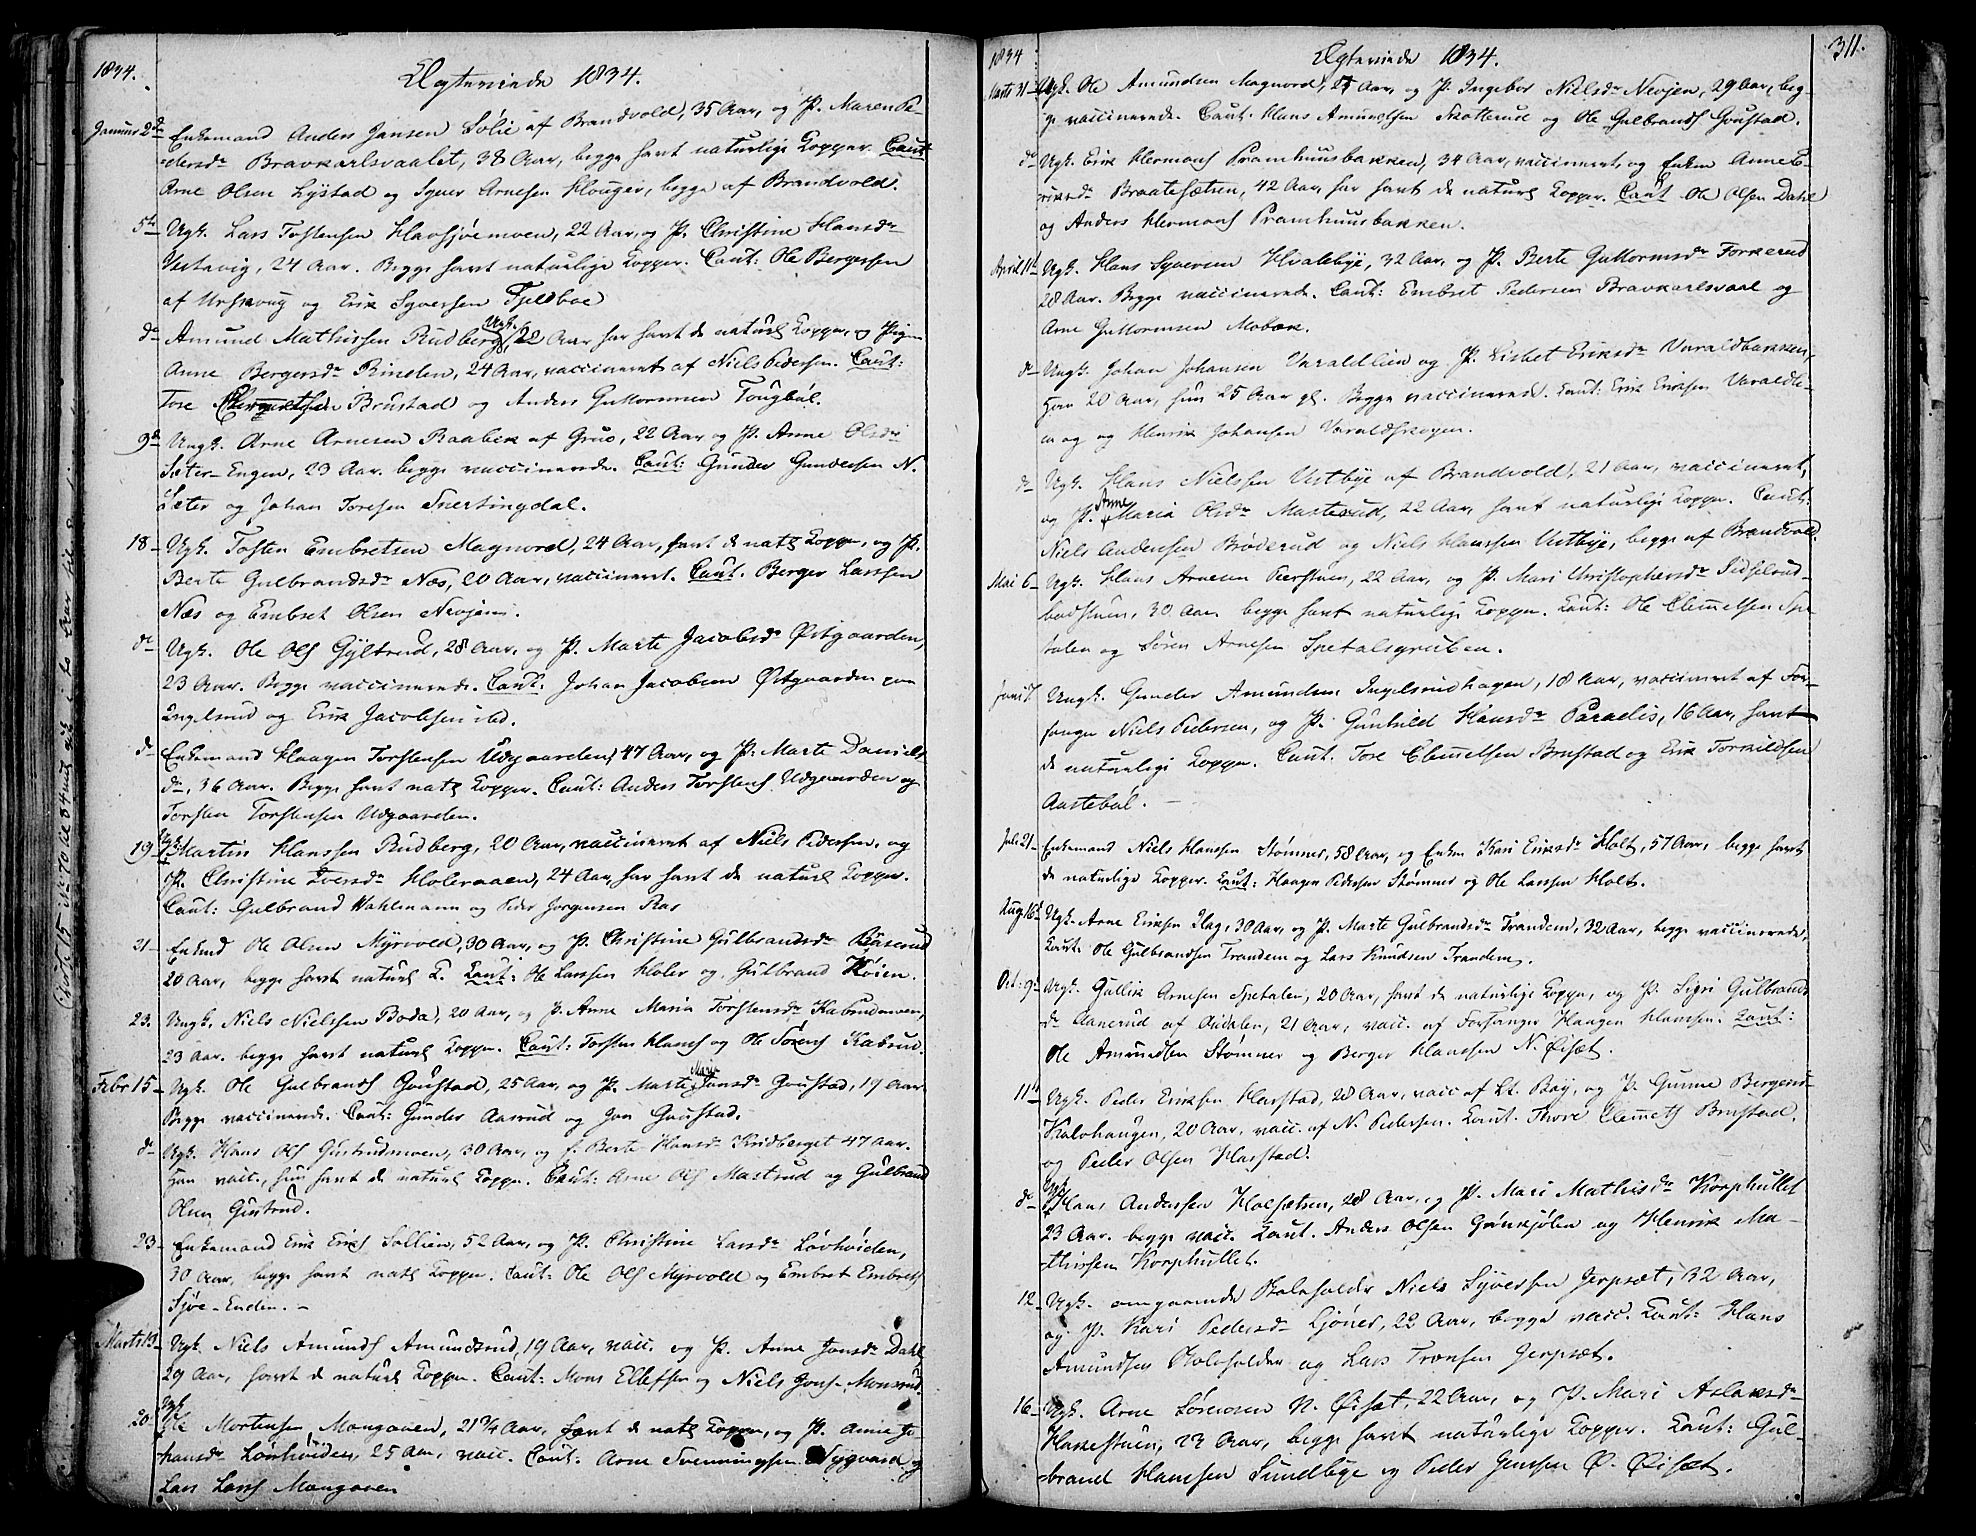 1834.
Ægteviede 1834.
Januar 2de Enkemand Anders Jansen Solie af Brandvold, 35 Aar, og P. Maren Pe-
dersdr Bravkarlsvaalet, 38 Aar, begge havt naturlige Kopper. Caut
Arne Olsen Lystad og Syver Arnesen Houger, begge af Brandvold.
5te Ugk. Lars Tostensen Havsjøemoen, 22 Aar, og P. Christine Hansdr
Vestavig, 24 Aar. Begge havt naturlige Kopper. Caut: Ole Bergersen
af Urskoug og Erik Syversen Fjeldboe
do Amund Mathissen Rudberg, Ugk. 22 Aar har havt de naturl Kopper, og Pige
Anne Bergersdr Rinden, 24 Aar, vaccineret af Niels Pedersen. Caut:
Tore Brustad og Anders Guttormsen Tougbøl.
9de Ungk. Arne Arnesen Raabek af Grue, 22 Aar og P. Anne Olsdr
Sæter-Engen, 23 Aar. begge vaccinerede. Caut: Gunder Gundersen N.
Sæter og Johan Toresen Snertingdal.
18 Ugk. Tosten Embretsen Magnord, 24 Aar, havt de natl Kopper, og P.
Berte Gulbrandsdr Næs, 20 Aar, vaccineret. Caut. Berger Larssen
Næs og Embret Olsen Nevjen.
do Ugk. Ole Ols Gyltrud, 28 Aar, og P. Marte Jacobsdr Østgaarden,
23 Aar. Begge vaccinerede. Caut: Johan Jacobsen Østgaarden paa
Engelsrud og Erik Jacobsen ibd.
do Enkemand Haagen Torstensen Udgaarden, 47 Aar, og P: Marte Daniels
dr, 36 Aar. Begge havt natl Kopper. Caut: Anders Torstens Udgaarden og
Torsten Torstensen Udgaarden.
19 Ugk. Martin Hanssen Rudberg, 20 Aar, vaccineret af Niels Pedersen, og
P. Christine Iversdr Holeraaen, 24 Aar, har havt de naturl Kopper.
Caut: Gulbrand Wahlmann og Peder Jørgensen Ras
21 Enkmd Ole Olsen Myrvold, 30 Aar, og P. Christine Gulbrandsdr Raserud
20 Aar, begge havt naturl K. Caut: Ole Larssen Holer og Gulbrand Køien.
23. Ungk. Niels Nielssen Boda, 20 Aar, og P. Anne Maria Torstensdr Kabrudmoen,
23 Aar. begge havt naturl Kopper. Caut: Torsten Hans og Ole Sørens Kabrud.
Febr 15 Ugk. Ole Gulbrands Goustad, 25 Aar, og P. Marte Maria Jonsdr Goustad, 19 Aar
Begge vaccinerede. Caut: Gunder Aasrud og Jon Goustad.
do Ugk. Hans Ols Gustrudmoen, 30 Aar, og f. Berte Hansdr Kridberget 47 Aar.
Han vacc., hun havt de naturl Kopper. Caut: Arne Ols Mastrud og Gulbrand
Olsen Gustrud.
23 Enkemand Erik Eriks Sollien, 52 Aar, og P. Christine Larsdr Løvhøiden,
30 Aar, begge havt natl Kopper. Caut: Ole Ols Myrvold og Embret Embrets
Sjøe-Enden. -
Marts 13 Ugk Niels Amunds Amundsrud, 19 Aar, vacc. og P. Anne Jonsdr Dahl
29 Aar, havt de naturl Kopper. Caut: Mons Ellefsen og Niels Jons Monsrud
20 Ugk Ole Mortensen Mangoven, 21 3/4 Aar, havt de natl Kopper, og P. Anne Jo-
hansdr Løvhøiden, 25 Aar, vacc. Caut: Arne Svenningsen Nygaard og
Lars Lars Mangoven
Gjort 15
1834
Ægteviede 1834.
311.
Marts 31 Ugk. Ole Amundsen Magnord, 25 Aar, og P. Ingebor Nielsdr Nevjen, 29 Aar, beg-
ge vaccinerede. Caut. Hans Amundsen Skotterud og Ole Gulbrands Goustad.
do Ugk. Erik Hermans Pramhuusbakken, 34 Aar, vaccineret, og Enken Anne E-
riksdr Braatesætren, 42 Aar, har havt de naturl Kopper. Caut Ole Olsen Dahl
og Anders Hermans Pramhuusbakken.
April 11 Ugk. Hans Syversen Hvalebye, 32 Aar, og P. Berte Guttormsdr Torkerud
28 Aar. Begge vaccinerede. Caut: Embret Pedersen Bravkarlsvaal og
Arne Guttormsen Mobæk.
do Ungk. Johan Johansen Varaldlien og P. Lisbet Eriksdr Varaldbakken,
Han 20 Aar, hun 25 Aar gl. Begge vaccinerede. Caut: Erik Eriksen Varaldh-
aug og Henrik Johansen Varaldskogen.
do Ugk. Hans Nielssen Vestbye af Brandvold, 21 Aar, vaccineret,
og P. Anne Maria Olsdr Masterud, 22 Aar, havt naturlige Kopper. Caut:
Niels Andersen Brøderud og Niels Hanssen Vestbye, begge af Brandvold.
Mai 6 Ugk. Hans Arnesen Peerstuen, 22 Aar, og P. Mari Christophersdr Sidselrud-
badstuen, 30 Aar begge havt naturlige Kopper. Caut: Ole Clemetsen Spe-
talen og Søren Arnesen Spetalsgruben.
Juni 7. Ungk. Gunder Amundsen Ingelsrudhagen, 18 Aar, vaccineret af For-
sanger Niels Pedersen, og P. Gunhild Hansdr Paradis, 16 Aar, havt
de naturlige Kopper. Caut. Tore Clemetsen Brustad og Erik Torkildsen
Aastebøl. -
Juli 21 Enkemand Niels Hanssen Stømner, 58 Aar, og Enken Kari Eriksdr Holt, 57 Aar, begge havt
de naturlige Kopper. Caut: Haagen Pedersen Stømner og Ole Larssen Holt.
Aug 16 Ugk. Arne Eriksen Slag, 30 Aar, og P. Marte Gulbrandsdr Trandem, 32 Aar, begge vaccinerede,
Caut: Ole Gulbrandsen Trandem og Lars Knudsen Trandem.
Oct: 9de Ugk. Gullik Arnesen Spetalen, 20 Aar, havt de naturlige Kopper, og P. Sigri Gulbrands
dr Aanerud af Audalen, 21 Aar, vacc. af Forsanger Haagen Hanssen. Caut:
Ole Amundsen Stømner og Berger Hanssen N. Øisæt.
11te Ugk. Peder Eriksen Harstad, 28 Aar, vacc af Lt. Bay, og P. Gunne Bergersdr
Kalvhaugen, 20 Aar, vacc. af N. Pedersen. Caut. Thore Clemets Brustad,
og Peder Olsen Harstad.
do Ugk Hans Anderssen Holsætren, 28 Aar, og P. Mari Mathisdr Korphullet
23 Aar. begge vacc. Caut. Anders Olsen Grønkjølen og Henrik Ma-
thissen Korphullet.
12 Ugk. omgaaende Skoleholder Niels Syversen Jerpsæt, 32 Aar,
og P. Kari Pedersdr Ljøner, 22 Aar, begge vacc. Caut: Hans
Amundsen Skoleholder og Lars Tronsen Jerpsæt.
16 Ugk. Arne Sørensen N. Øisæt, 22 Aar, og P. Mari Aslaksdr
Hakkestuen, 23 Aar, begge havt naturlige Kopper. Caut: Gul-
brand Hanssen Sundbye og Peder Jenssen Ø. Øisæt.